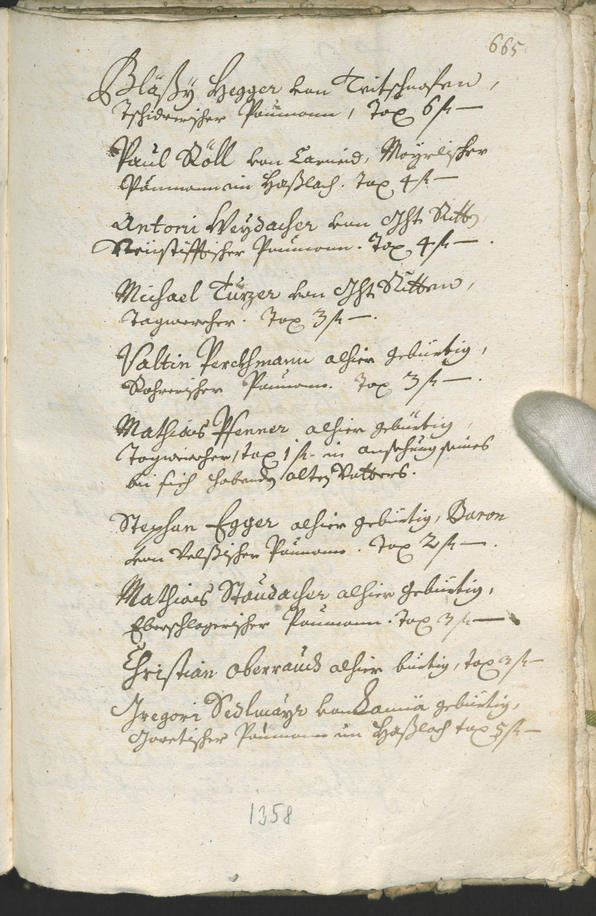 665
Bläßÿ Hegger von Teitschnofen,
Tschidrerischer Paumann, Tax 6 f —
Paul Röll von Carneid, Mayrlischer
Paumann im Haßlach. Tax 4 f —
Antoni Weydacher von Ght Ritten
Neustifftischer Paumann. Tax 4 f —.
Michael Turzer von Ght Ritten,
Tagwercher. Tax 3 f —.
Valtin Perckhmann alhier gebürtig,
Rohrerischer Paumann. Tax 3 f —.
Mathias Pfenner alhier gebürtig,
Tagwercher, tax 1 f — in ansehung seines
bei sich habenden alten Vatters.
Stephan Egger alhier gebürtig, Baron
von Velsischer Paumann. Tax 2 f —.
Mathias Staudacher alhier gebürtig,
Eberschlagerischer Paumann. Tax 3 f —
Christian Oberrauch alhier bürtig, tax 3 f —
Gregori Sedlmayr von gebürtig,
Paumann im Haßlach tax 5 f —
1358